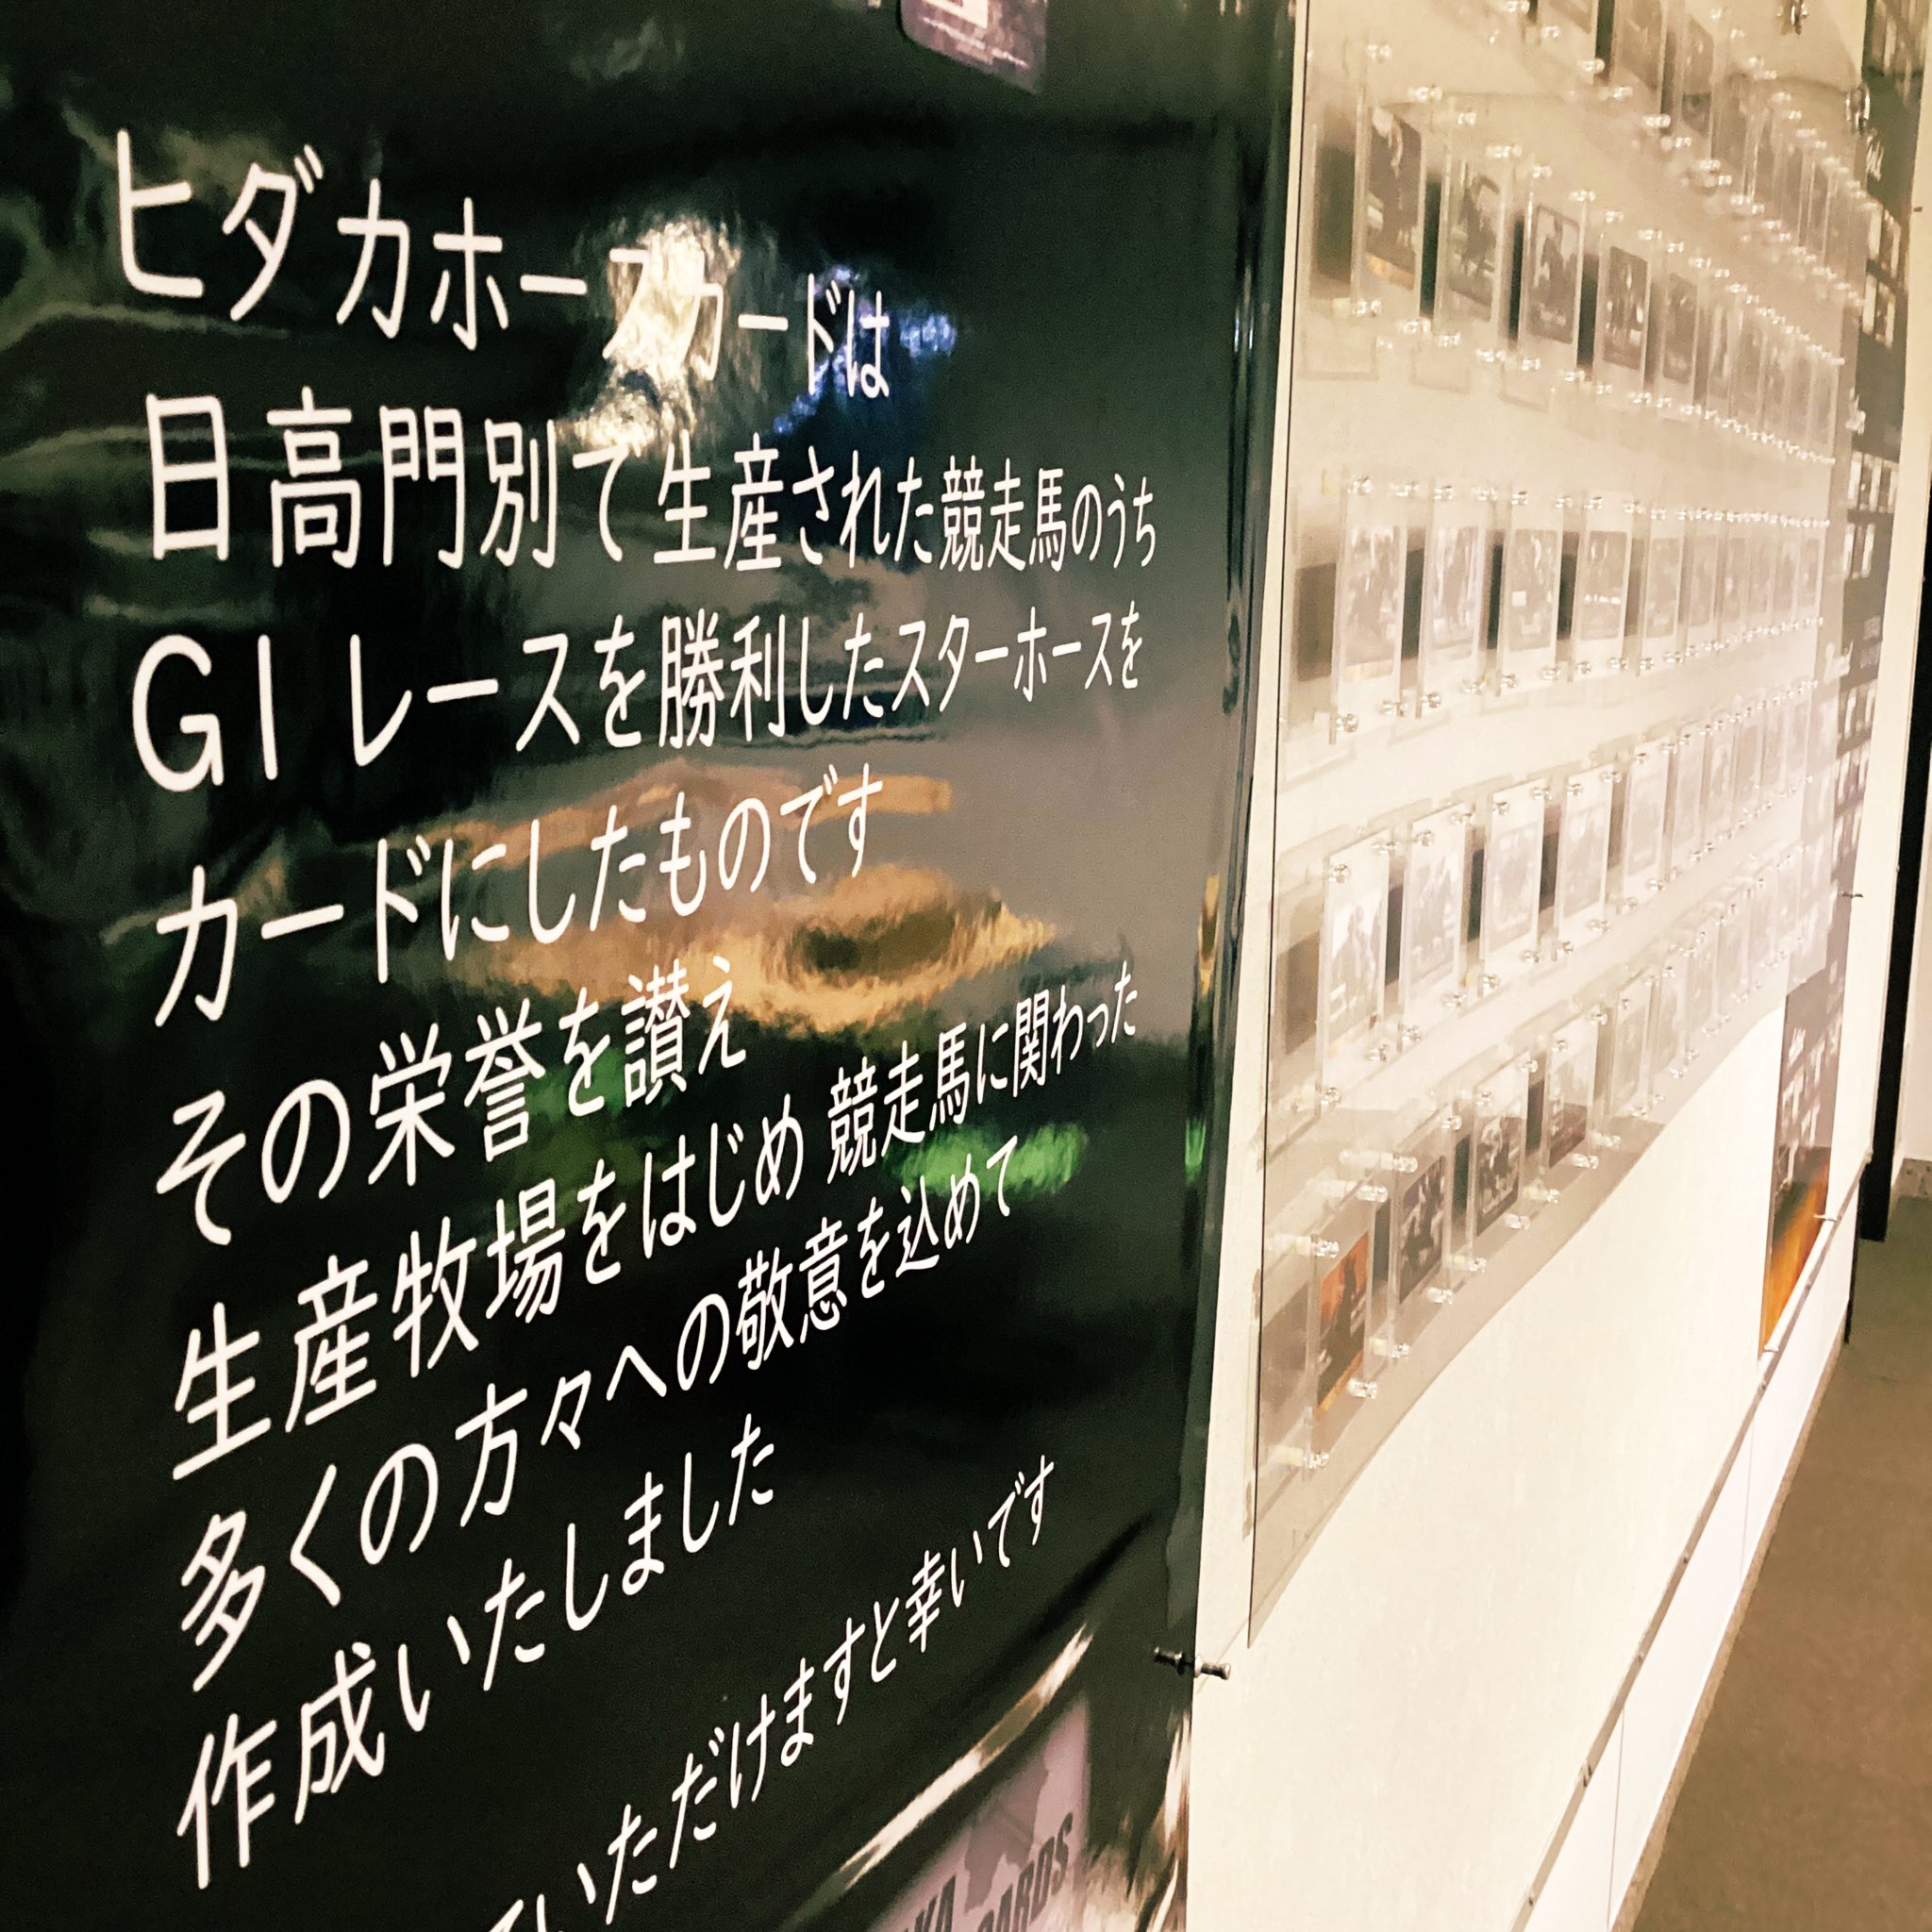 ヒダカホースカードは
日高門別で生産された競走馬のうち
GIレースを勝利したスターホースを
カードにしたものです
その栄誉を讃え
生産牧場をはじめ 競走馬に関わった
多くの方々への敬意を込めて
作成いたしました
いただけますと幸いです
CARDS